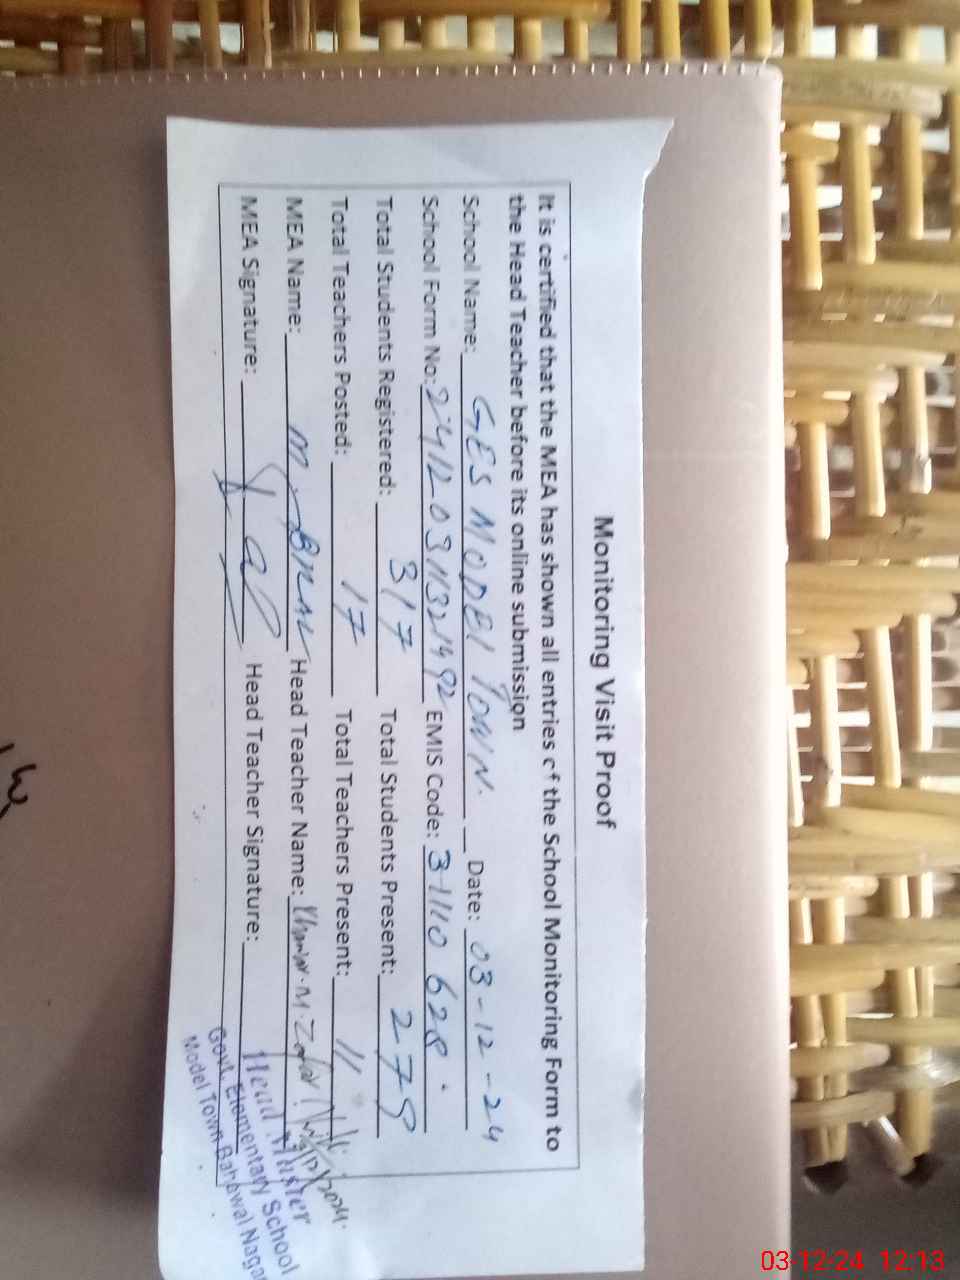 Monitoring Visit Proof
It is certified that the MEA has shown all entries of the School Monitoring Form to
the Head Teacher before its online submission
School Name: GES MODEL TOWN. Date: 03-12-24
School Form No: 2412031132492 EMIS Code: 31110628
Total Students Registered: 317 Total Students Present: 279
Total Teachers Posted: 17 Total Teachers Present: 11
MEA Name: Head Teacher Name: M. Zafar
MEA Signature: Head Teacher Signature:
Head Master
Govt. Elementary School
Model Town Bahawal Nagar
03-12-24 12:13